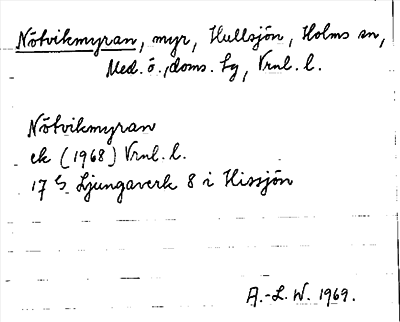 Nötvikmyran, myr, Hullsjön, Holms sn,
Med. ö. doms. hg, Vrnl. l.
Nötvikmyran
ek (1968) Vrnl. l.
17 G Ljungaverk 8 i Hissjön
A.-L. W. 1969.